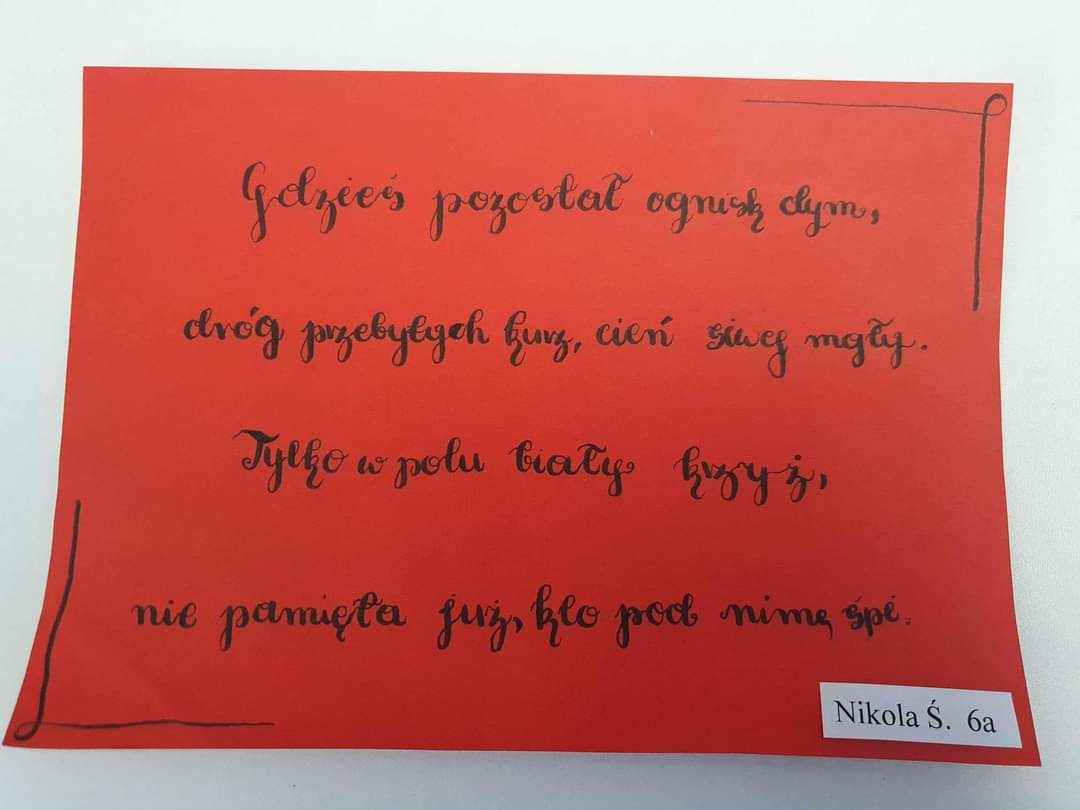 Gdzieś pozostał ognisk dym,
dróg przebytych kurz, cień siwej mgły.
Tylko w polu biały krzyż,
nie pamięta już, kto pod nim śpi.
Nikola Ś. 6a